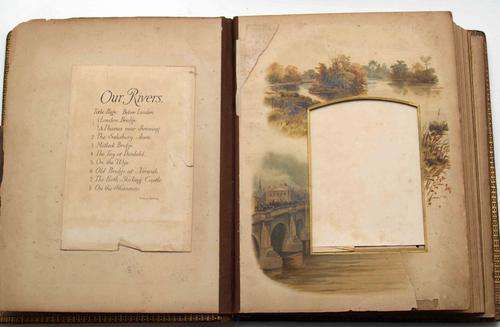 Our Rivers.
Title Page. Below London
London Bridge
Thames near Sonning
2 The Salisbury Avon
3 Matlock Bridge
4 The Tay at Dunkeld
5 On the Wye
6 Old Bridge at Norwich
7 The Forth, Stirling Castle
8 On the Shannon